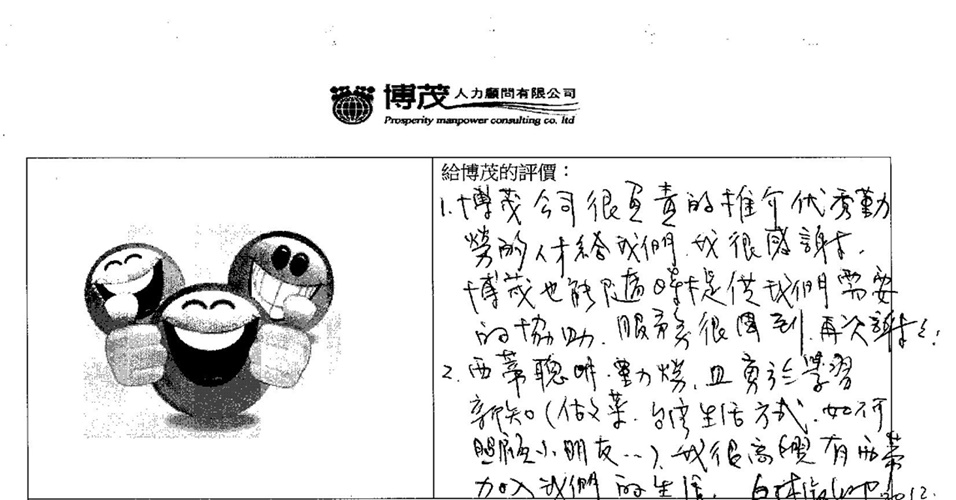 博茂 人力顧問有限公司
Prosperity manpower consulting co. ltd
給博茂的評價：
1. 博茂公司很負責的推介優秀勤
勞的人才給我們, 我很感謝.
博茂也能隨時提供我們需要
的協助. 服務很周到, 再次謝謝.
2. 西蒂聰明.勤勞, 且勇於學習
新知(做菜.台灣生活方式.如何
照顧小朋友...), 我很高興有西蒂
加入我們的生活.